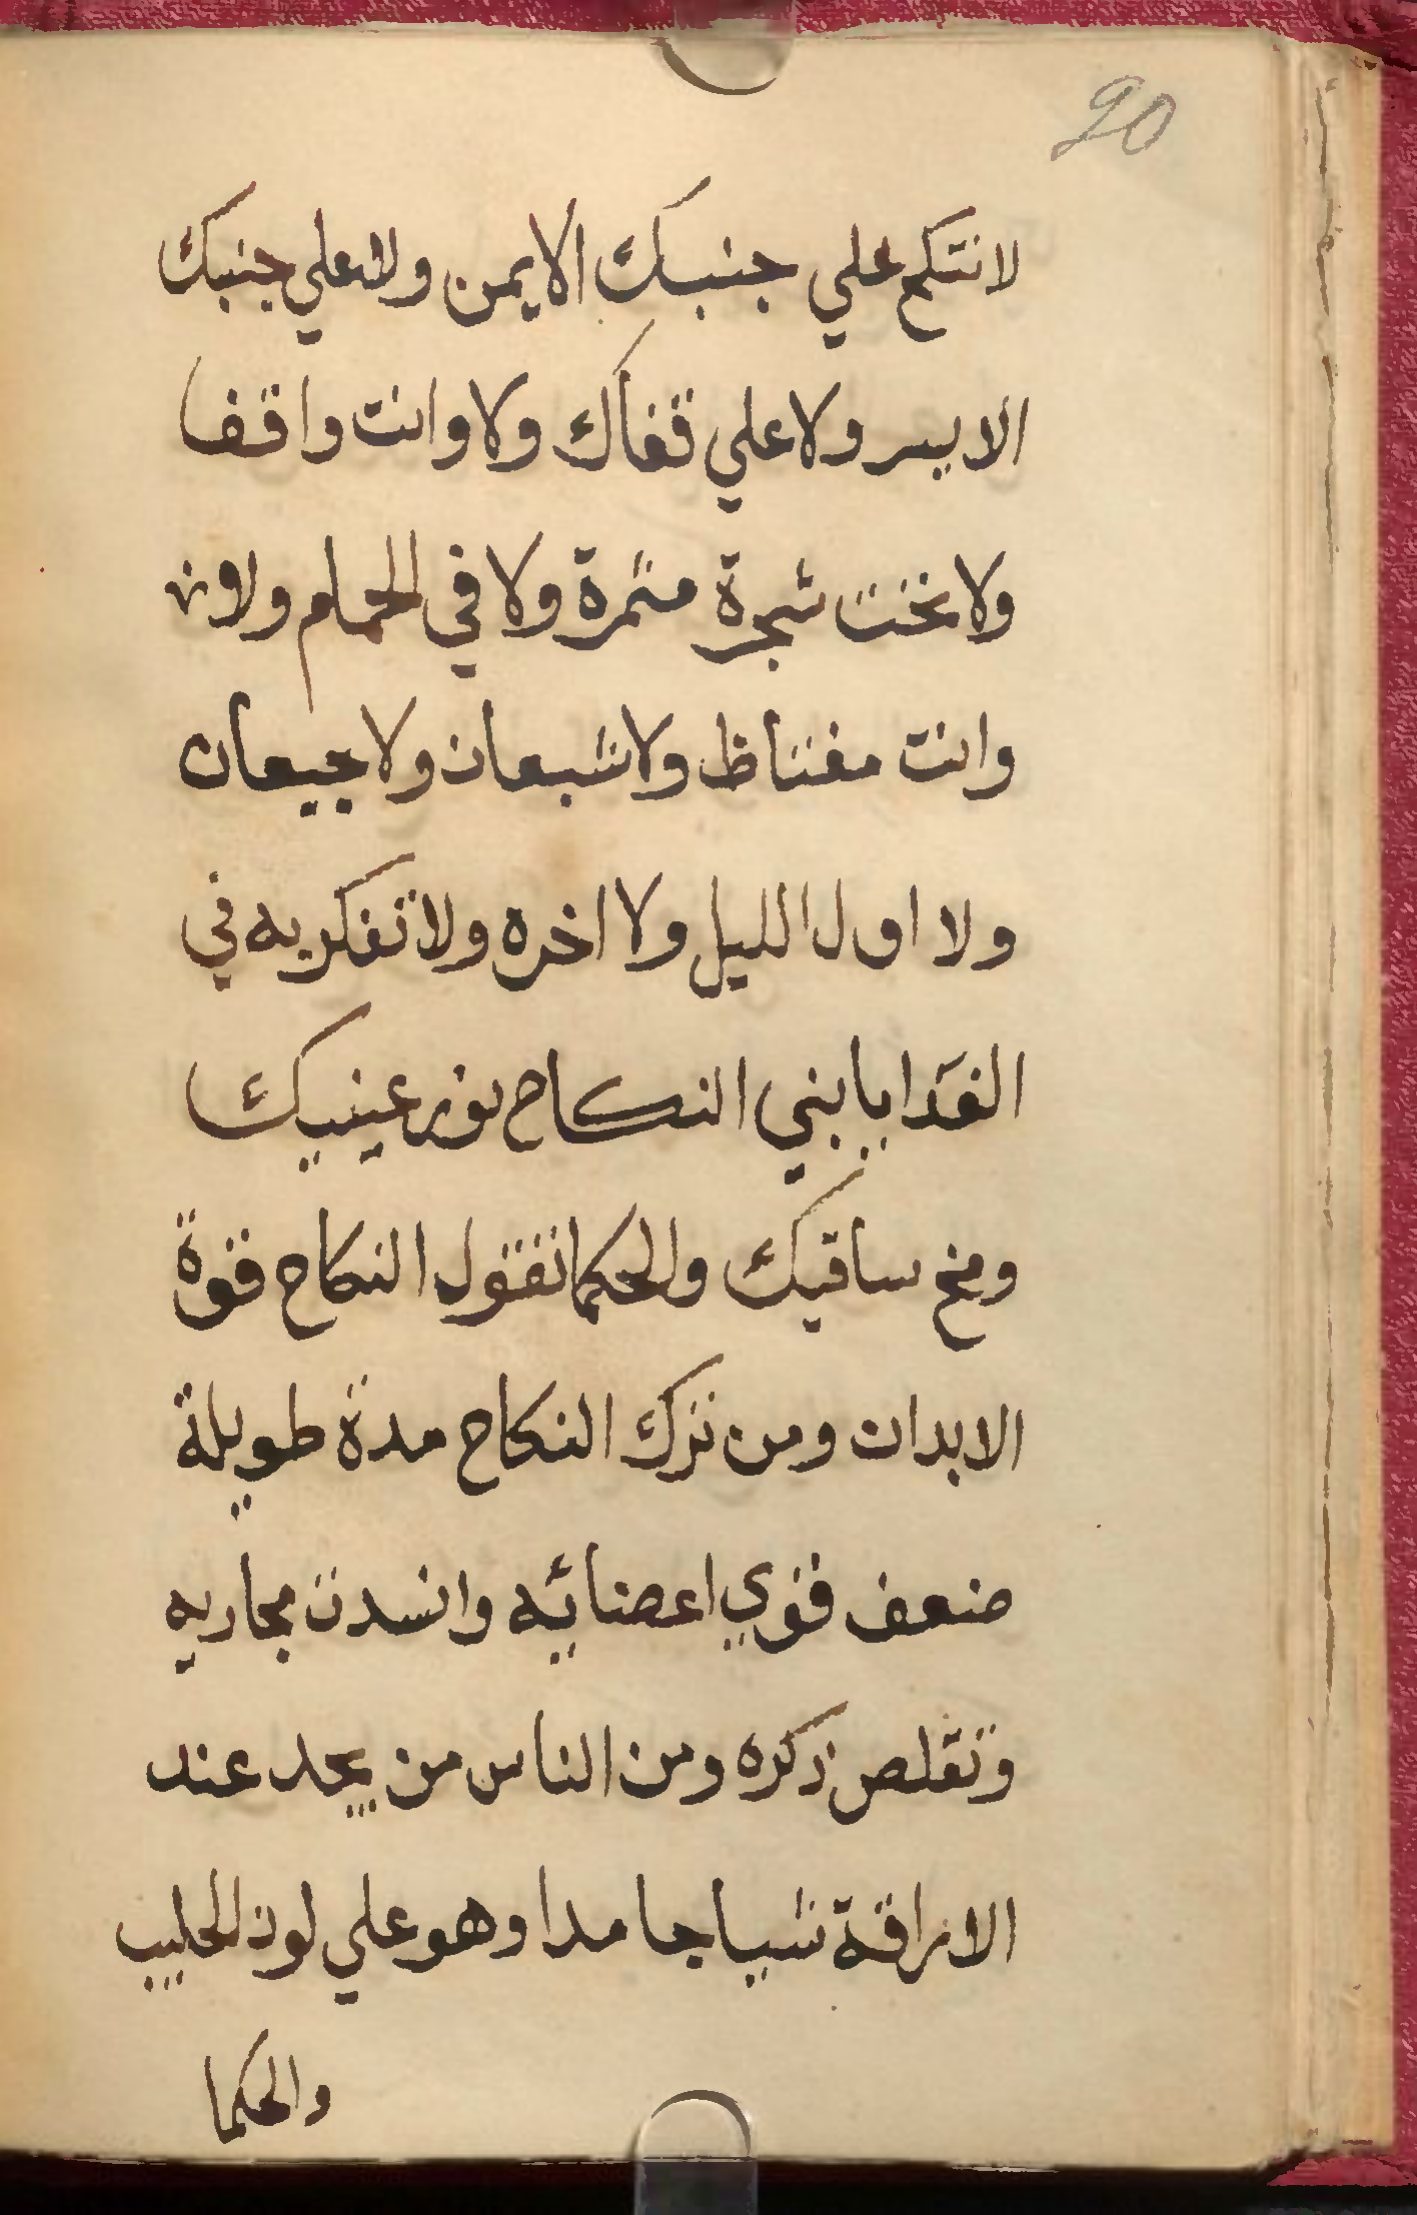 20
لا تنكح علي جنبك الايمن ولا علي جنبك
الايسر ولا علي قفاك ولا وانت واقفا
ولا تحت شجرة مثمرة ولا في الحمام ولا
وانت مغتاظ ولا شبعان ولا جيعان
ولا اول الليل ولا اخره ولا تفكر به في
الغدا يا بني النكاح نور عينيك
ومخ ساقيك والحكما تقول النكاح قوة
الابدان ومن ترك النكاح مدة طويلة
ضعف قوي اعضائيه وانسدت مجاريه
وتقلص ذكره ومن الناس من يجد عند
الاراقة شيا جامدا وهو علي لون الحليب
والحكما